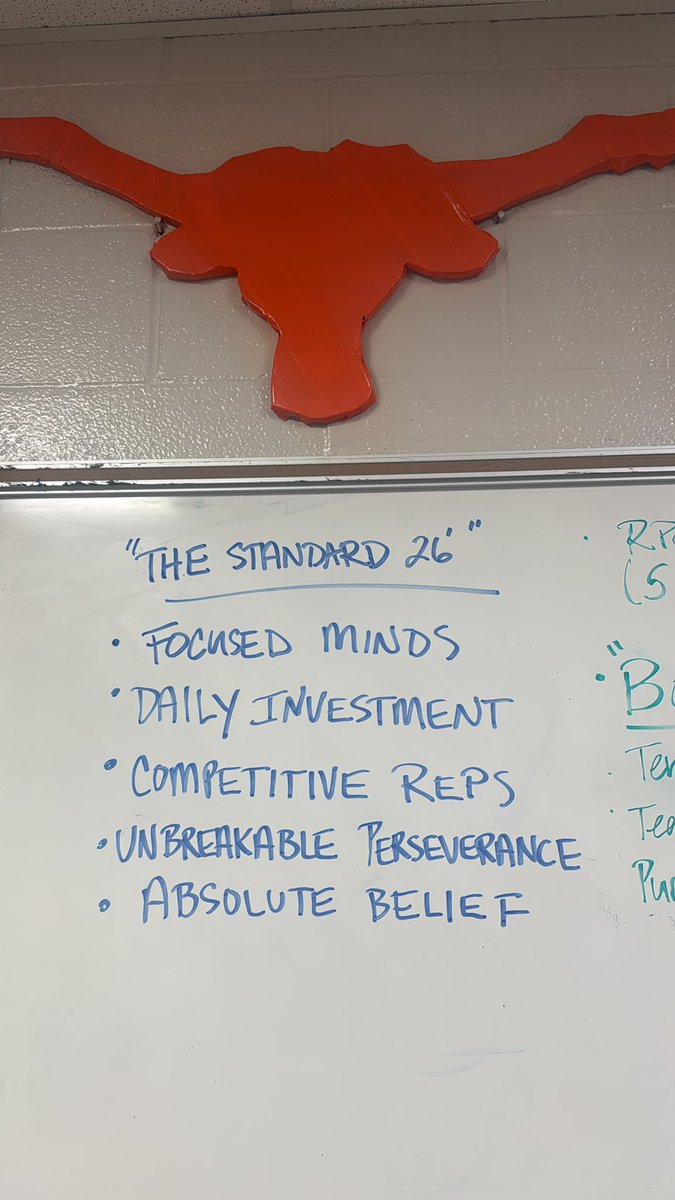 "THE STANDARD 26'"
• FOCUSED MINDS
• DAILY INVESTMENT
• COMPETITIVE REPS
• UNBREAKABLE PERSEVERANCE
• ABSOLUTE BELIEF